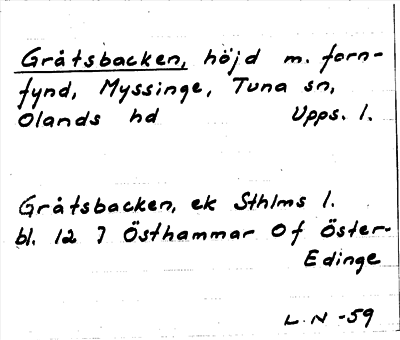 Gråtsbacken, höjd m. forn-
fynd, Myssinge, Tuna sn,
Olands hd Upps. l.
Gråtsbacken, ek Sthlms l.
bl. 12 J Östhammar Of Öster-
Edinge
L.N -59